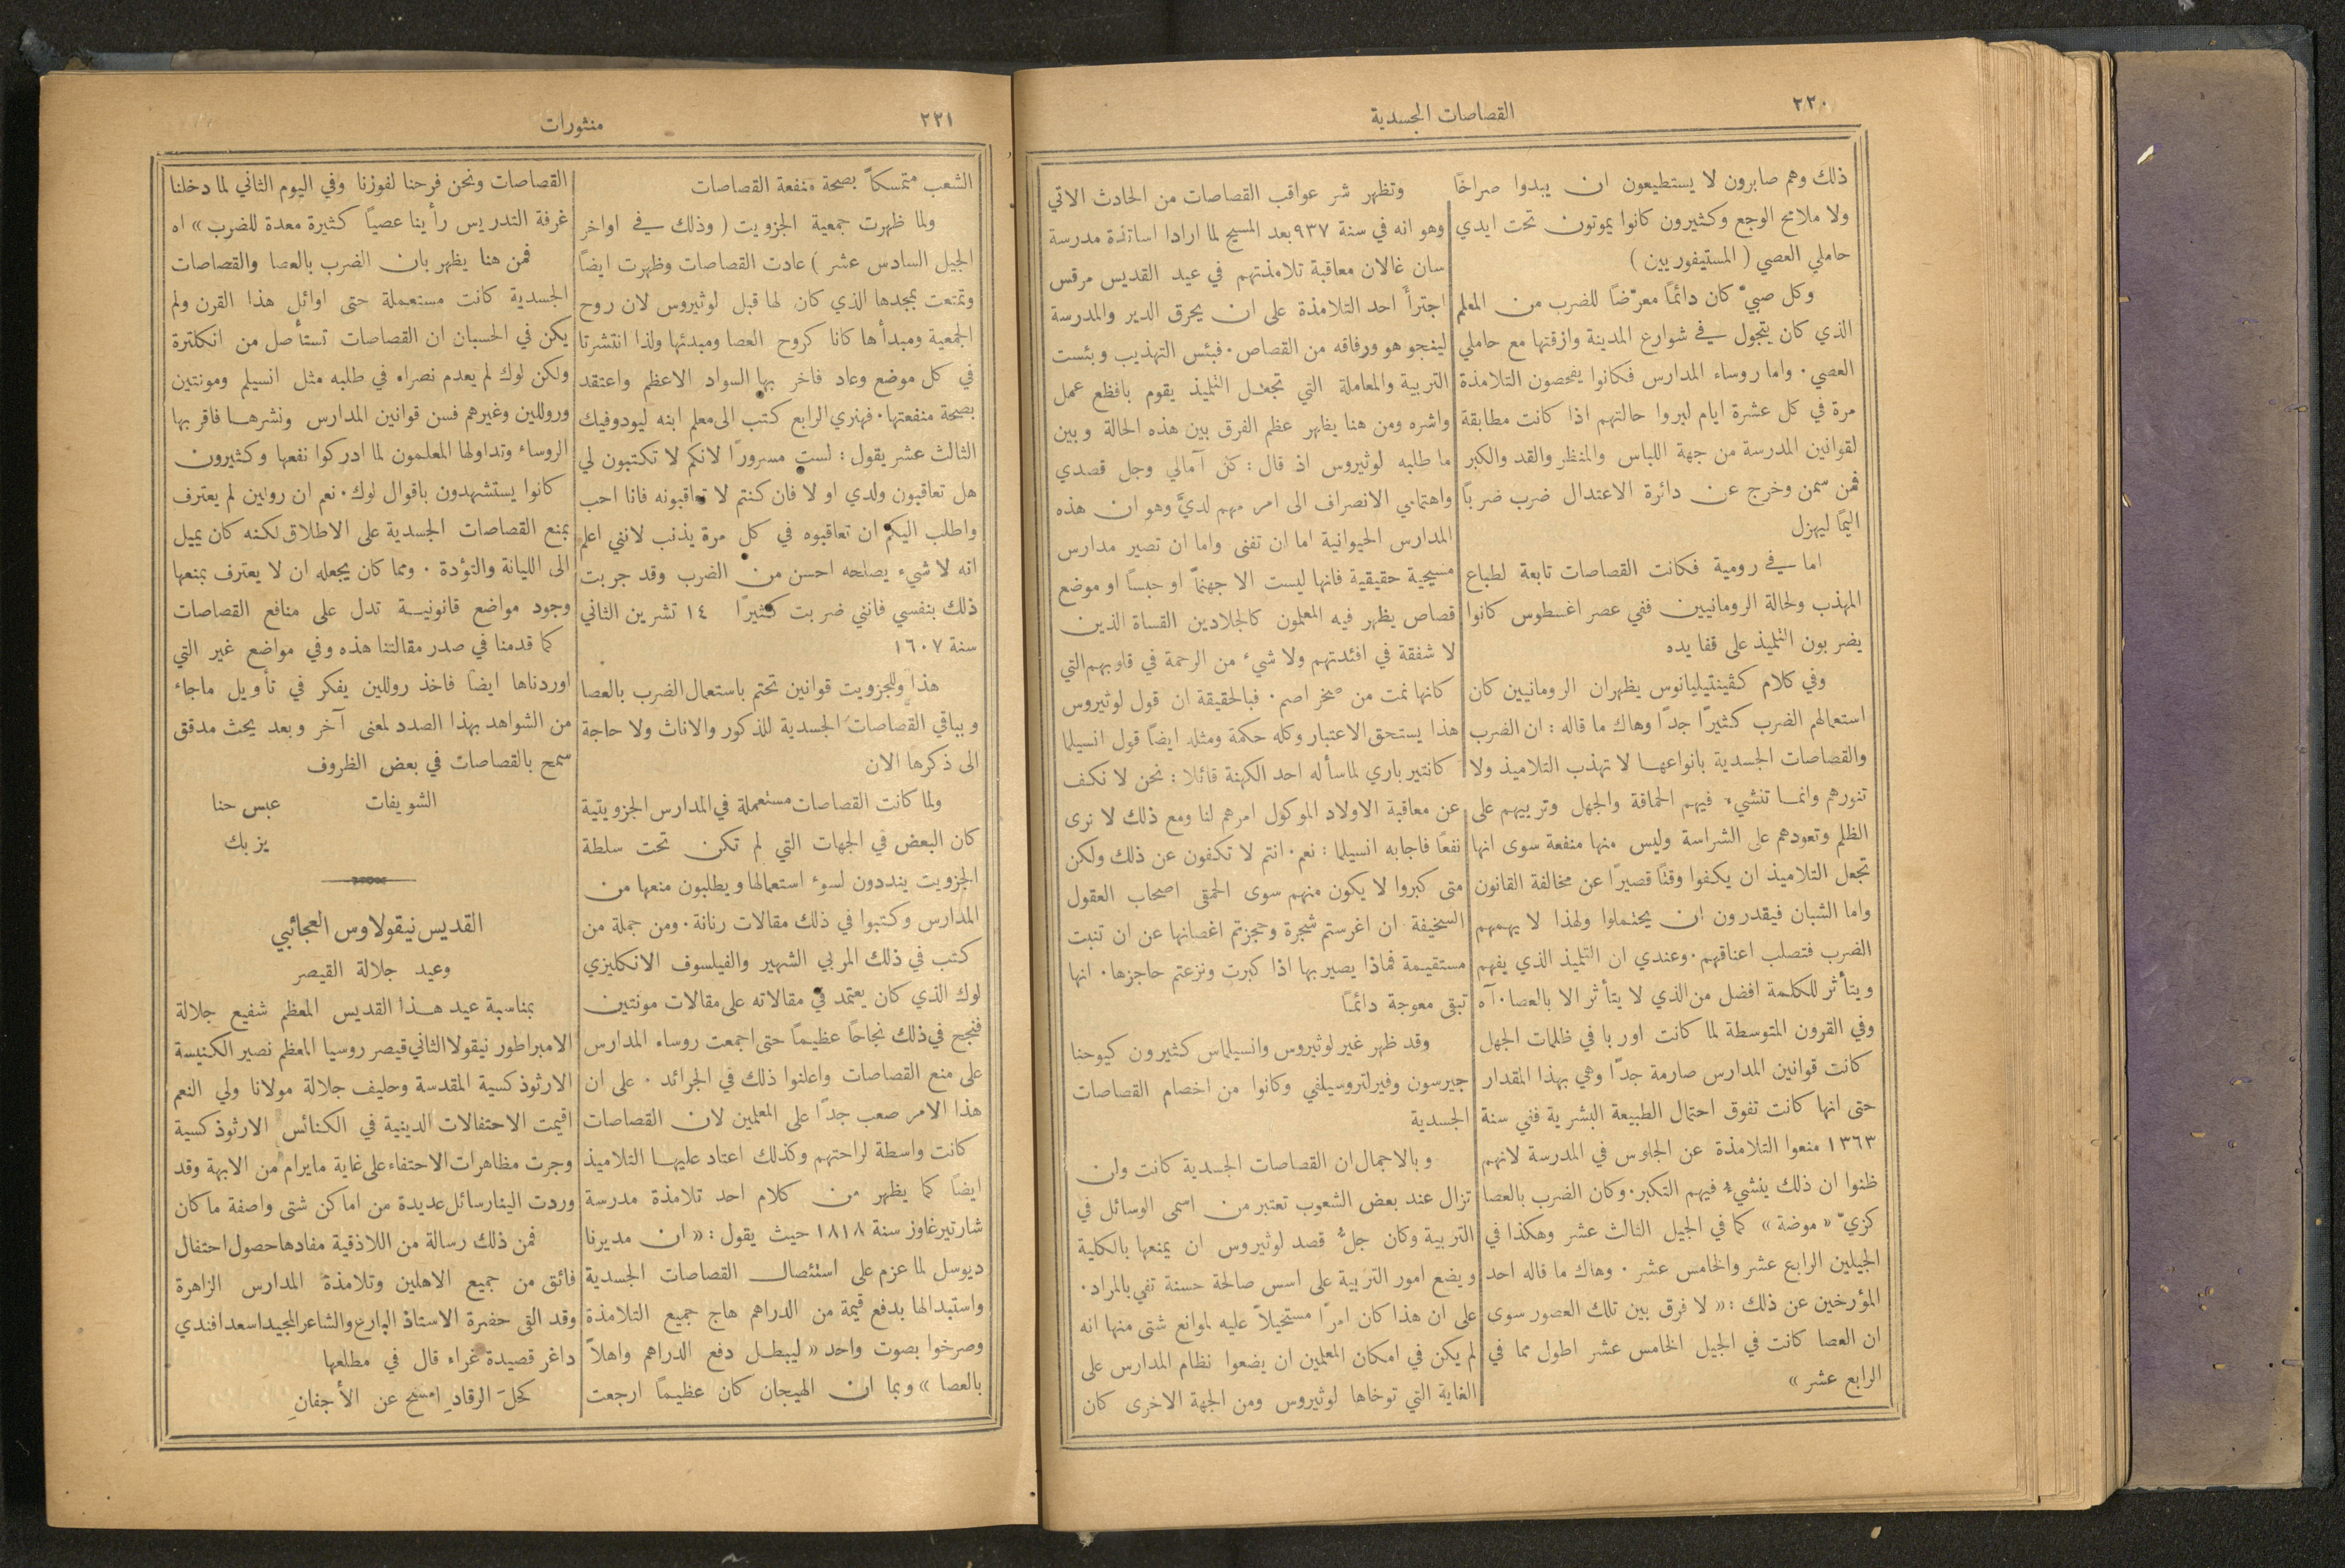 ٢٢٠
القصاصات الجسدية
ذلك وهم صابرون لا يستطيعون ان يبدوا صراخًا
ولا ملامح الوجع وكثيرون كانوا يموتون تحت ايدي
حاملي العصي ( المستيفوريين )
وكل صبيّ كان دائمًا معرّضًا للضرب من المعلم
الذي كان يتجول في شوارع المدينة وازقتها مع حاملي
العصي . واما روساء المدارس فكانوا يفحصون التلامذة
مرة في كل عشرة ايام ليروا حالتهم اذا كانت مطابقة
لقوانين المدرسة من جهة اللباس والمنظر والقد والكبر
فمن سمن وخرج عن دائرة الاعتدال ضرب ضربًا
اليمًا ليهزل
اما في رومية فكانت القصاصات تابعة لطباع
المهذب ولحالة الرومانيين ففي عصر اغسطوس كانوا
يضربون التلميذ على قفا يده
وفي كلام كڤينتيليانوس يظهران الرومانيين كان
استعمالهم الضرب كثيرًا جدًا وهاك ما قاله : ان الضرب
والقصاصات الجسدية بانواعها لا تهذب التلاميذ ولا
تنورهم وانما تنشيء فيهم الحماقة والجهل وتربيهم على
الظلم وتعودهم على الشراسة وليس منها منفعة سوى انها
تجعل التلاميذ ان يكفوا وقتًا قصيرًا عن مخالفة القانون
واما الشبان فيقدرون ان يحتملوا ولهذا لا يهمهم
الضرب فتصلب اعناقهم . وعندي ان التلميذ الذي يفهم
ويتأثر للكلمة افضل من الذي لا يتأثر الا بالعصا . آه
وفي القرون المتوسطة لما كانت اوربا في ظلمات الجهل
كانت قوانين المدارس صارمة جدًّا وهي بهذا المقدار
حتى انها كانت تفوق احتمال الطبيعة البشرية ففي سنة
١٣٦٣ منعوا التلامذة عن الجلوس في المدرسة لانهم
ظنوا ان ذلك ينشيء فيهم التكبر . وكان الضرب بالعصا
كزيّ « موضة » كما في الجيل الثالث عشر وهكذا في
الجيلين الرابع عشر والخامس عشر . وهاك ما قاله احد
المؤرخين عن ذلك : « لا فرق بين تلك العصور سوى
ان العصا كانت في الجيل الخامس عشر اطول مما في
الرابع عشر »
وتظهر شر عواقب القصاصات من الحادث الاتي
وهو انه في سنة ٩٣٧ بعد المسيح لما ارادا اساتذة مدرسة
سان غالان معاقبة تلامذتهم في عيد القديس مرقس
اجترأَ احد التلامذة على ان يحرق الدير والمدرسة
لينجو هو ورفاقه من القصاص . فبئس التهذيب وبئست
التربية والمعاملة التي تجعل التلميذ يقوم بافظع عمل
واشره ومن هنا يظهر عظم الفرق بين هذه الحالة وبين
ما طلبه لوثيروس اذ قال : كل آمالي وجل قصدي
واهتمامي الانصراف الى امر مهم لديَّ وهو ان هذه
المدارس الحيوانية اما ان تفنى واما ان تصير مدارس
مسيحية حقيقية فانها ليست الا جهنمًّا او حبسًا او موضع
قصاص يظهر فيه المعلمون كالجلادين القساة الذين
لا شفقة في افئدتهم ولا شيء من الرحمة في قلوبهم التي
كانها نحت من صخر اصم . فبالحقيقة ان قول لوثيروس
هذا يستحق الاعتبار وكله حكمة ومثله ايضًا قول انسيلما
كانتير باري لما سأله احد الكهنة قائلا : نحن لا نكف
عن معاقبة الاولاد الموكول امرهم لنا ومع ذلك لا نرى
نفعًا فاجابه انسيلما : نعم . انتم لا تكفون عن ذلك ولكن
متى كبروا لا يكون منهم سوى الحمقى اصحاب العقول
السخيفة ان اغرستم شجرة وحجزتم اغصانها عن ان تنبت
مستقيمة فماذا يصير بها اذا كبرت ونزعتم حاجزها . انها
تبقى معوجة دائمًا
وقد ظهر غير لوثيروس وانسيلماس كثيرون كيوحنا
جيرسون وفيرلتروسيلفي وكانوا من اخصام القصاصات
الجسدية
وبالاجمال ان القصاصات الجسدية كانت ولن
تزال عند بعض الشعوب تعتبر من اسمى الوسائل في
التربية وكان جلُّ قصد لوثيروس ان يمنعها بالكلية
ويضع امور التربية على اسس صالحة حسنة تفي بالمراد .
على ان هذا كان امرًا مستحيلاً عليه لموانع شتى منها انه
لم يكن في امكان المعلمين ان يضعوا نظام المدارس على
الغاية التي توخاها لوثيروس ومن الجهة الاخرى كان
٢٢١
منثورات
الشعب متمسكاً بصحة منفعة القصاصات
ولما ظهرت جمعية الجزويت ( وذلك في اواخر
الجيل السادس عشر ) عادت القصاصات وظهرت ايضًا
وتمتعت بمجدها الذي كان لها قبل لوثيروس لان روح
الجمعية ومبدأها كانا كروح العصا ومبدئها ولذا انتشرتا
في كل موضع وعاد فاخر بها السواد الاعظم واعتقد
بصحة منفعتها . فهنري الرابع كتب الى معلم ابنه ليودوفيك
الثالث عشر يقول : لست مسرورًا لانكم لا تكتبون لي
هل تعاقبون ولدي او لا فان كنتم لا تعاقبونه فانا احب
واطلب اليكم ان تعاقبوه في كل مرة يذنب لانني اعلم
انه لا شيء يصلحه احسن من الضرب وقد جربت
ذلك بنفسي فانني ضربت كثيرًا ١٤ تشرين الثاني
سنة ١٦٠٧
هذا وللجزويت قوانين تحتم باستعمال الضرب بالعصا
وبباقي القصاصات الجسدية للذكور والاناث ولا حاجة
الى ذكرها الان
ولما كانت القصاصات مستعملة في المدارس الجزويتية
كان البعض في الجهات التي لم تكن تحت سلطة
الجزويت ينددون لسوء استعمالها ويطلبون منعها من
المدارس وكتبوا في ذلك مقالات رنانة . ومن جملة من
كتب في ذلك المربي الشهير والفيلسوف الانكليزي
لوك الذي كان يعتمد في مقالاته على مقالات مونتين
فنجح في ذلك نجاحًا عظيمًا حتى اجمعت روساء المدارس
على منع القصاصات واعلنوا ذلك في الجرائد . على ان
هذا الامر صعب جدًا على المعلمين لان القصاصات
كانت واسطة لراحتهم وكذلك اعتاد عليها التلاميذ
ايضًا كما يظهر من كلام احد تلامذة مدرسة
شارتيرغاوز سنة ١٨١٨ حيث يقول : « ان مديرنا
ديوسل لما عزم على استئصال القصاصات الجسدية
واستبدالها بدفع قيمة من الدراهم هاج جميع التلامذة
وصرخوا بصوت واحد « ليبطل دفع الدراهم واهلاً
بالعصا » وبما ان الهيجان كان عظيمًا ارجعت
القصاصات ونحن فرحنا لفوزنا وفي اليوم الثاني لما دخلنا
غرفة التدريس رأينا عصيًا كثيرة معدة للضرب » اه
فمن هنا يظهر بان الضرب بالعصا والقصاصات
الجسدية كانت مستعملة حتى اوائل هذا القرن ولم
يكن في الحسبان ان القصاصات تستأصل من انكلترة
ولكن لوك لم يعدم نصراء في طلبه مثل انسيلم ومونتين
وروللين وغيرهم فسن قوانين المدارس ونشرها فاقر بها
الروساء وتداولها المعلمون لما ادركوا نفعها وكثيرون
كانوا يستشهدون باقوال لوك . نعم ان رولين لم يعترف
بمنع القصاصات الجسدية على الاطلاق لكنه كان يميل
الى الليانة والتؤدة . ومما كان يجعله ان لا يعترف بمنعها
وجود مواضع قانونية تدل على منافع القصاصات
كما قدمنا في صدر مقالتنا هذه وفي مواضع غير التي
اوردناها ايضًا فاخذ روللين يفكر في تأويل ماجاء
من الشواهد بهذا الصدد لمعنى آخر وبعد بحث مدقق
سمح بالقصاصات في بعض الظروف
الشويفات عبس حنا
يزبك
القديس نيقولاوس العجائبي
وعيد جلالة القيصر
بمناسبة عيد هذا القديس المعظم شفيع جلالة
الامبراطور نيقولا الثاني قيصر روسيا المعظم نصير الكنيسة
الارثوذكسية المقدسة وحليف جلالة مولانا ولي النعم
اقيمت الاحتفالات الدينية في الكنائس الارثوذكسية
وجرت مظاهرات الاحتفاء على غاية مايرام من الابهة وقد
وردت الينا رسائل عديدة من اماكن شتى واصفة ماكان
فمن ذلك رسالة من اللاذقية مفادها حصول احتفال
فائق من جميع الاهلين وتلامذة المدارس الزاهرة
وقد القى حضرة الاستاذ البارع والشاعر المجيد اسعد افندي
داغر قصيدة غراء قال في مطلعها
كحلَ الرقادِ امسح عن الأجفانِ